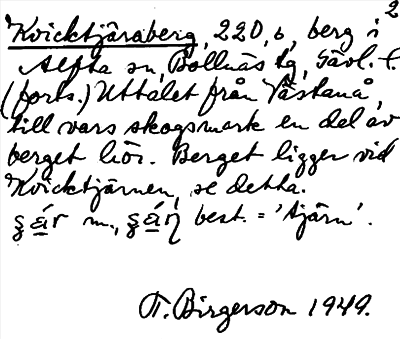 2
Kvicktjäraberg, 220, ö, berg i
Alfta sn, Bollnäs tg, Gävl. l.
(forts.) Uttalet från Västanå,
till vars skogsmark en del av
berget hör. Berget ligger vid
Kvicktjärnen, se detta.
m., best. = 'tjärn'.
T. Birgerson 1949.